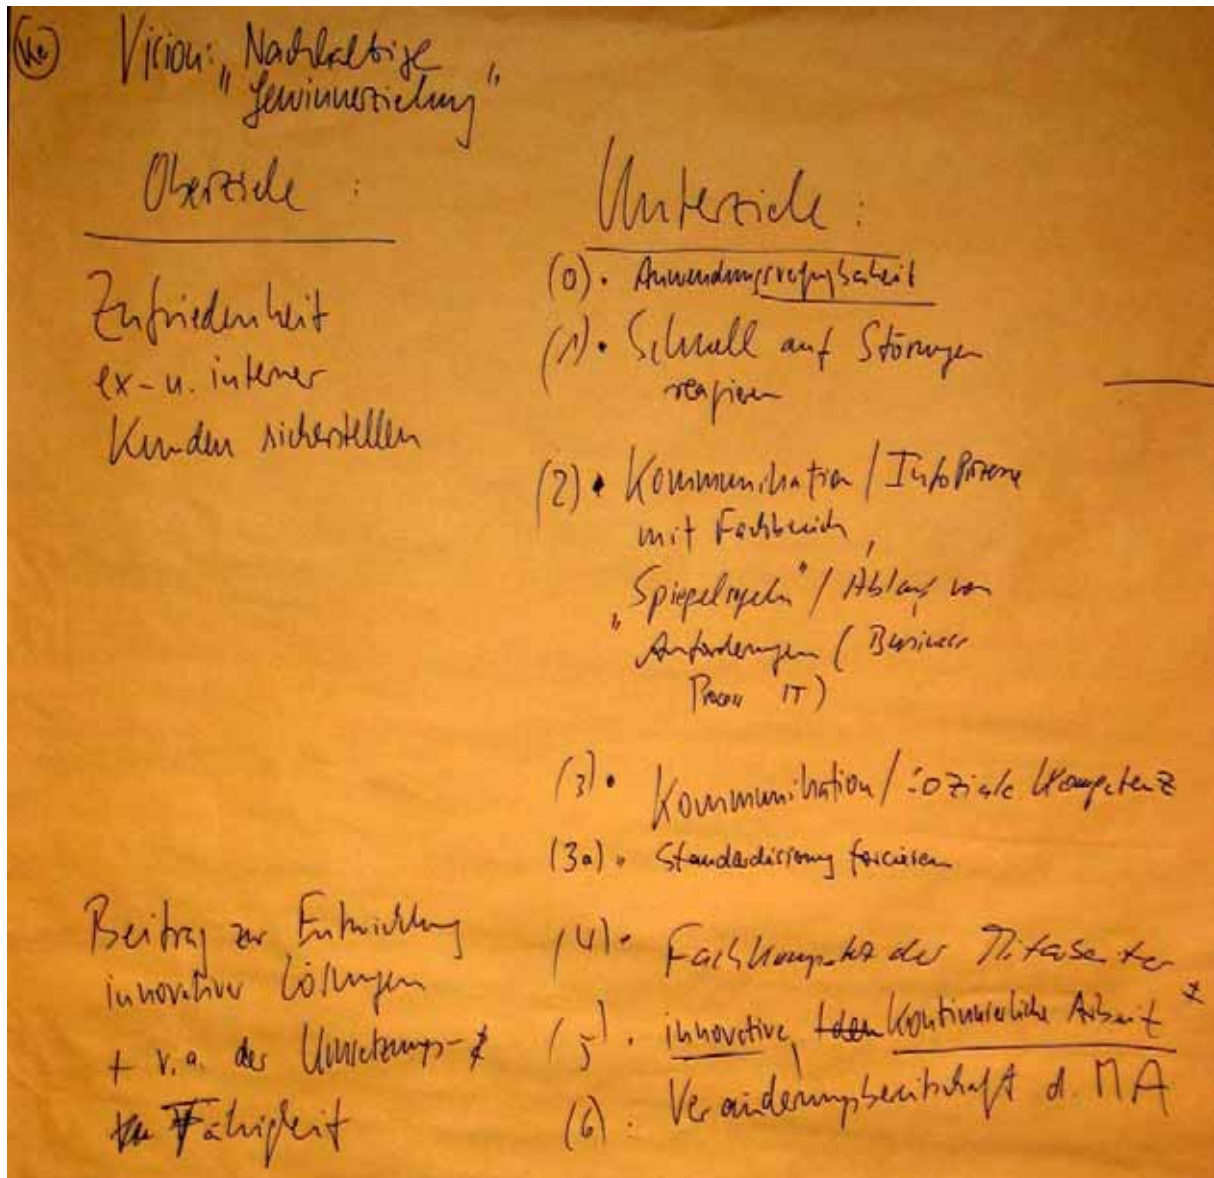 Vision: „Nachhaltige
Gewinnerzielung"
Oberziele :
Zufriedenheit
ex- u. interner
Kunden sicherstellen
Beitrag zur Entwicklung
innovativer Lösungen
+ v.a. der Umsetzungs-
Fähigkeit
Unterziele :
(0) • Anwendungsverfügbarkeit
(1) • Schnell auf Störungen
reagieren
(2) • Kommunikation / InfoProzesse
mit Fachbereich,
„Spiegelregeln" / Ablauf von
Anforderungen ( Business
Process IT )
(3) • Kommunikation / soziale Kompetenz
(3a) • Standardisierung forcieren
(4) • Fachkompetenz der Mitarbeiter
(5) • innovative, kontinuierliche Arbeit *
(6) • Veränderungsbereitschaft d. MA